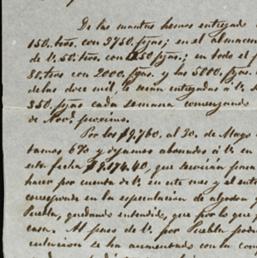 De las mantas hemos entregado
150. tros. con 3750. pzas; en el almacen
de V. 50. tros. con 1250 pzas.; en todo el
80. tros con 2000. pzas. y las 5000. pzas.
de las diez mil, le serán entregadas á V.
350. pzas cada semana comenzando
de próximo.
Por los $9,760. al 30. de Mayo
tamos 6% y dejamos abonados á V. en
esta fecha $9,174.40, que servirán para
hacer por cuenta de V. en este mes y el
corresponde en la especulacion de algodon
Puebla, quedando entendido, que por lo que
casa. Al paso de V. por Puebla
se ha aumentado con la